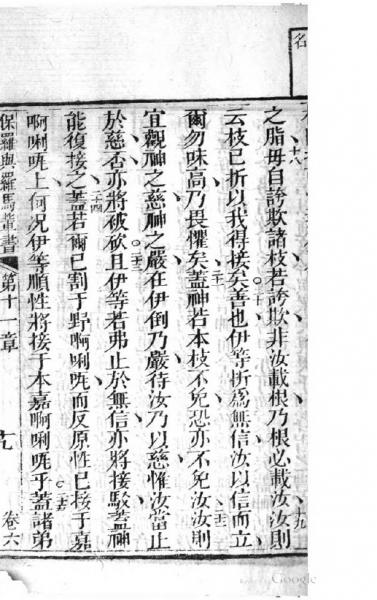 名
之脂毋自誇欺諸枝若誇欺非汝載根乃根必載汝汝則
十八
十九
云枝已折以我得接矣善也伊等折爲無信汝以信而立
二十
爾勿味高乃畏懼矣蓋神若本枝不免恐亦不免汝汝則
二十一
二十二
宜觀神之慈神之嚴在伊倒乃嚴待汝乃以慈惟汝當止
於慈否亦將被砍且伊等若弗止於無信亦將接駁蓋神
二十三
能復接之蓋若爾已割于野啊唎㕵而反原性已接于嘉
二十四
啊唎㕵上何況伊等順性將接于本嘉啊唎㕵乎蓋諸弟
二十五
保羅與羅馬輩書
第十一章
卷六
Google